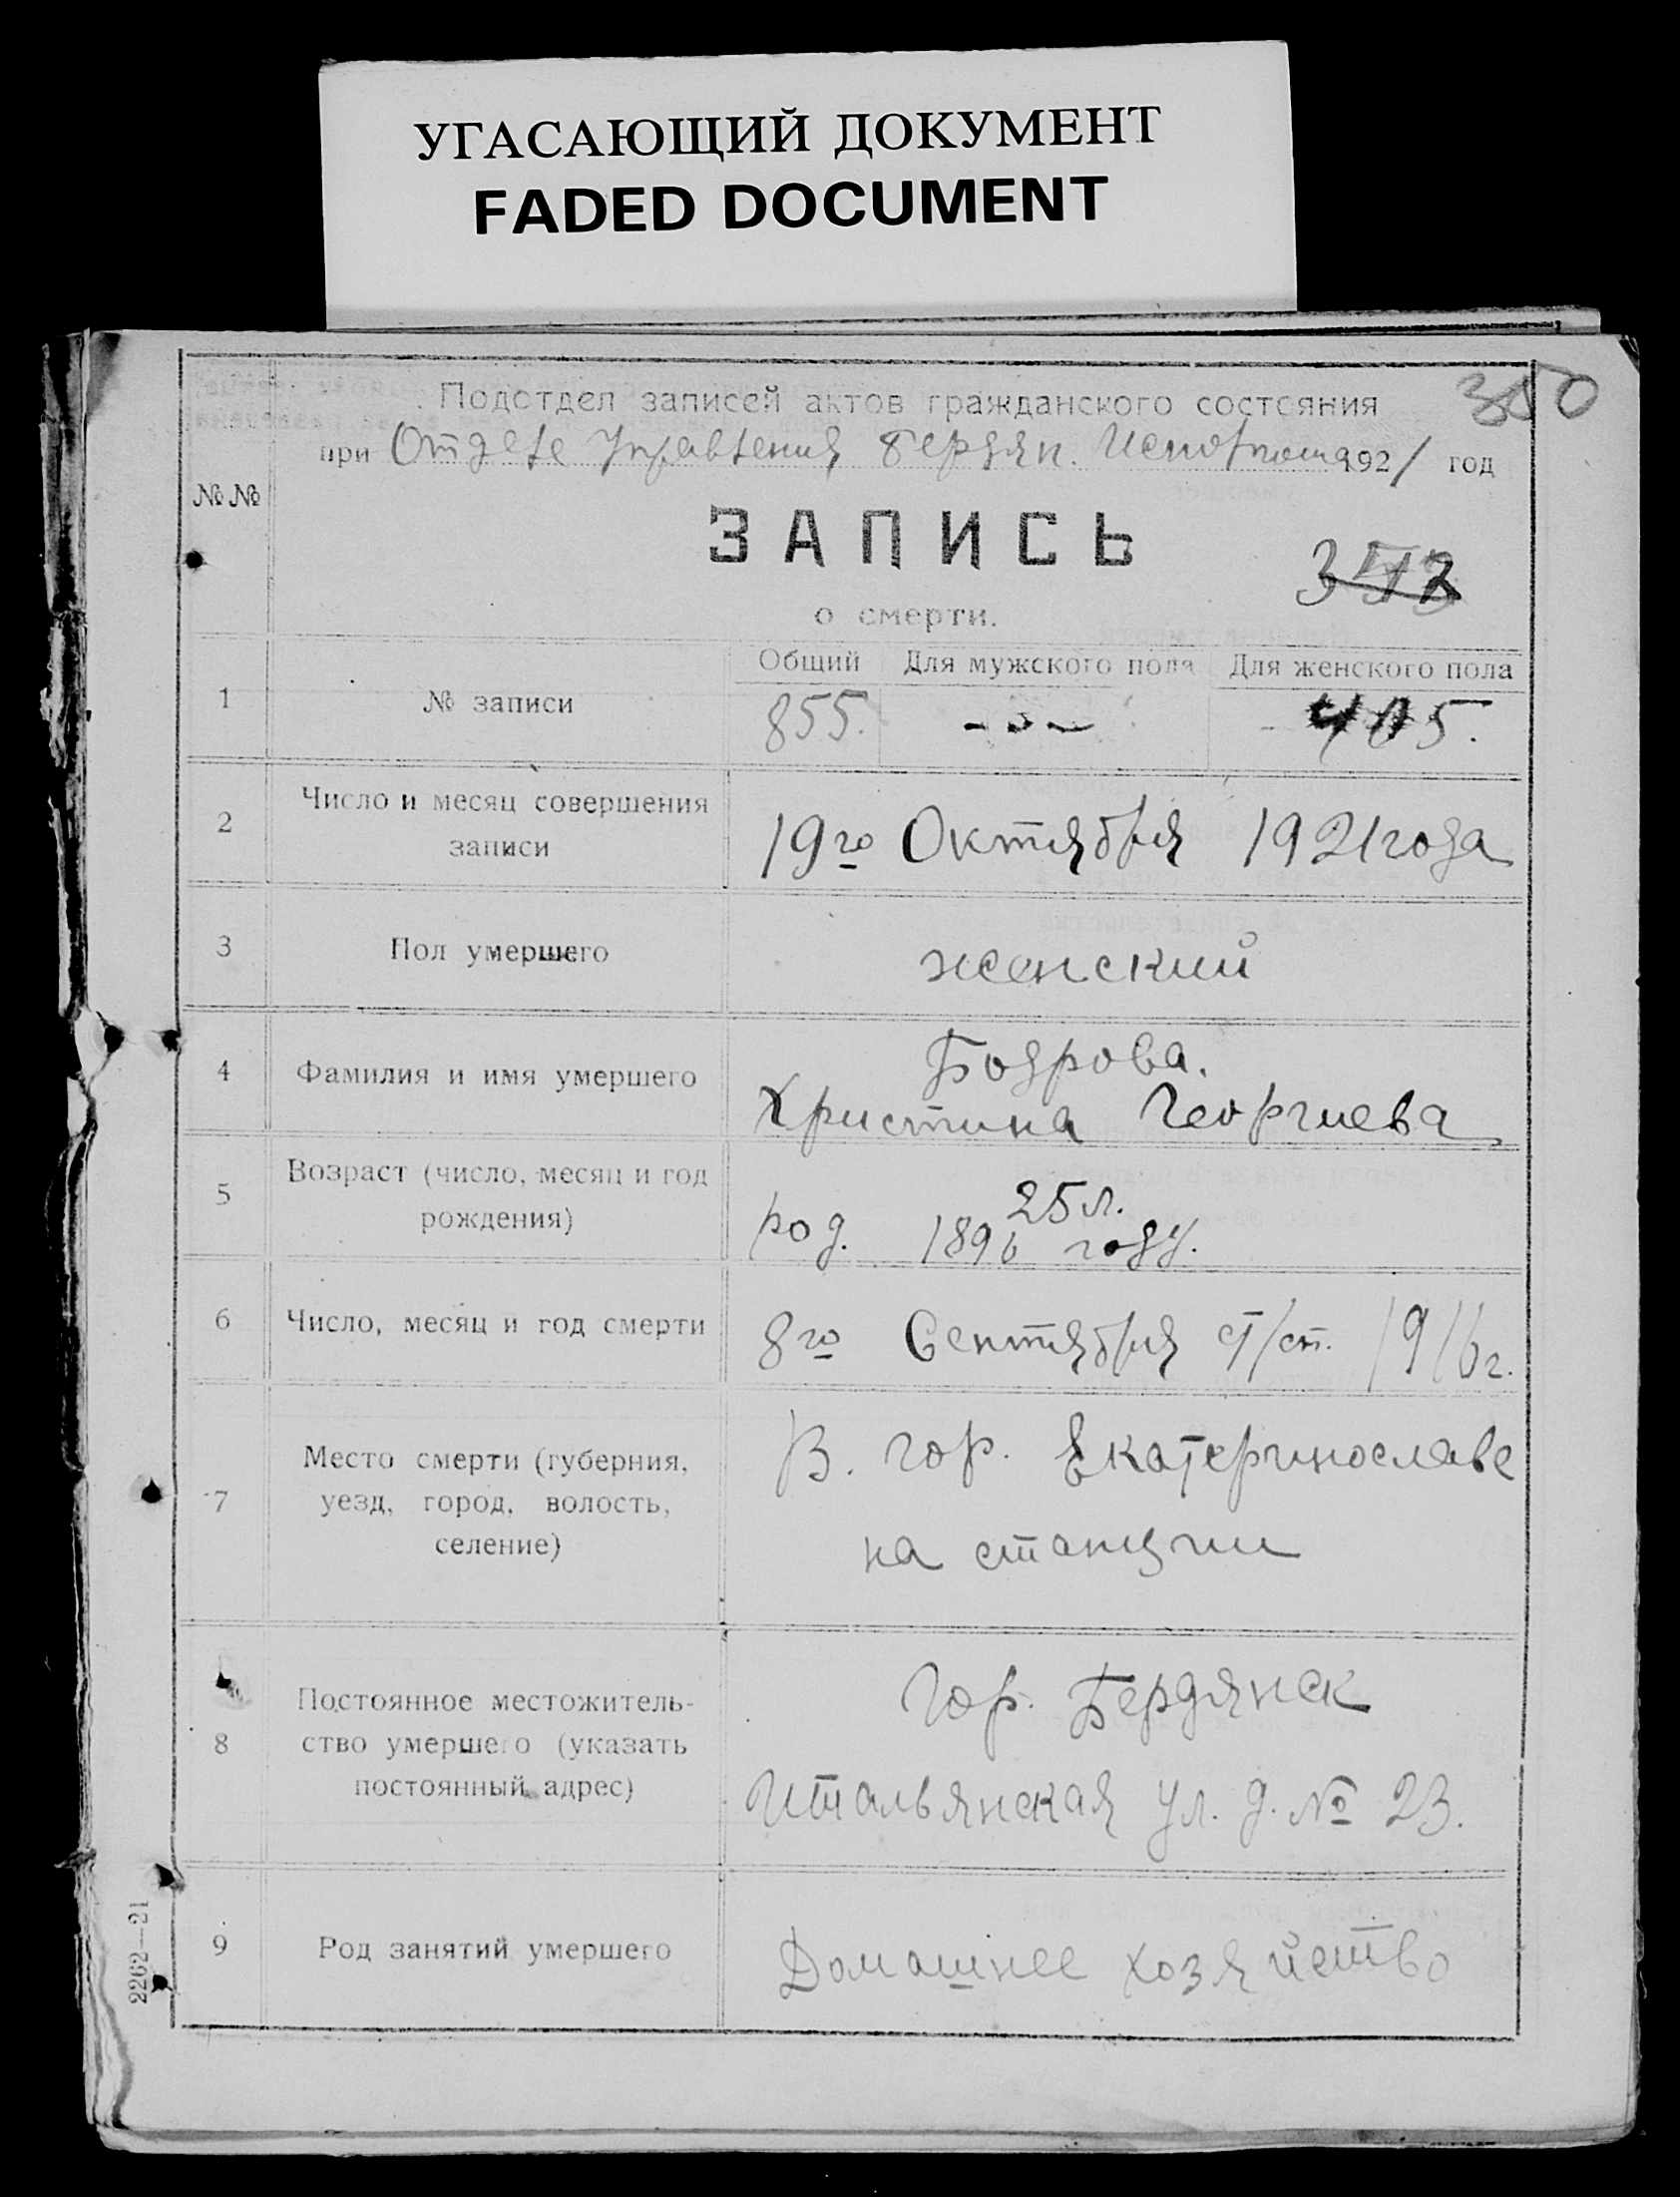 УГАСАЮЩИЙ ДОКУМЕНТ
FADED DOCUMENT
350
Подотдел записей актов гражданского состояния
при Отделе Управления Бердян. Исполкома 1921 год
№№
ЗАПИСЬ
о смерти.
Общий Для мужского пола Для женского пола
1 № записи 855. - - - 405.
2 Число и месяц совершения
записи
19го Октября 1921 года
3 Пол умершего женский
4 Фамилия и имя умершего
Бодрова.
Христина Георгиева
5 Возраст (число, месяц и год
рождения)
25 л.
род. 1896 году.
6 Число, месяц и год смерти 8го Сентября ст/ст. 1916 г.
7 Место смерти (губерния,
уезд, город, волость,
селение)
В. гор. Екатеринославе
на станции
8 Постоянное местожитель-
ство умершего (указать
постоянный адрес)
Гор. Бердянск
Итальянская ул. д. № 23.
9 Род занятий умершего Домашнее хозяйство
2262—21